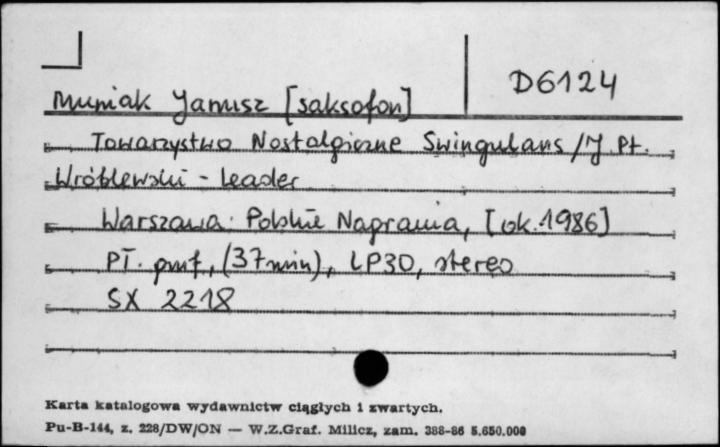 D6124
Muniak Janusz [saksofon]
Towarzystwo Nostalgiczne Swingulans / J. Pt.
Wróblewski - leader
Warszawa: Polskie Nagrania, [ok. 1986]
PŁ. gmf., (37 min), LP30, stereo
SX 2218
Karta katalogowa wydawnictw ciągłych i zwartych.
Pu-B-144, z. 228/DW/ON — W.Z.Graf. Milicz, zam. 388-86 5.650.000